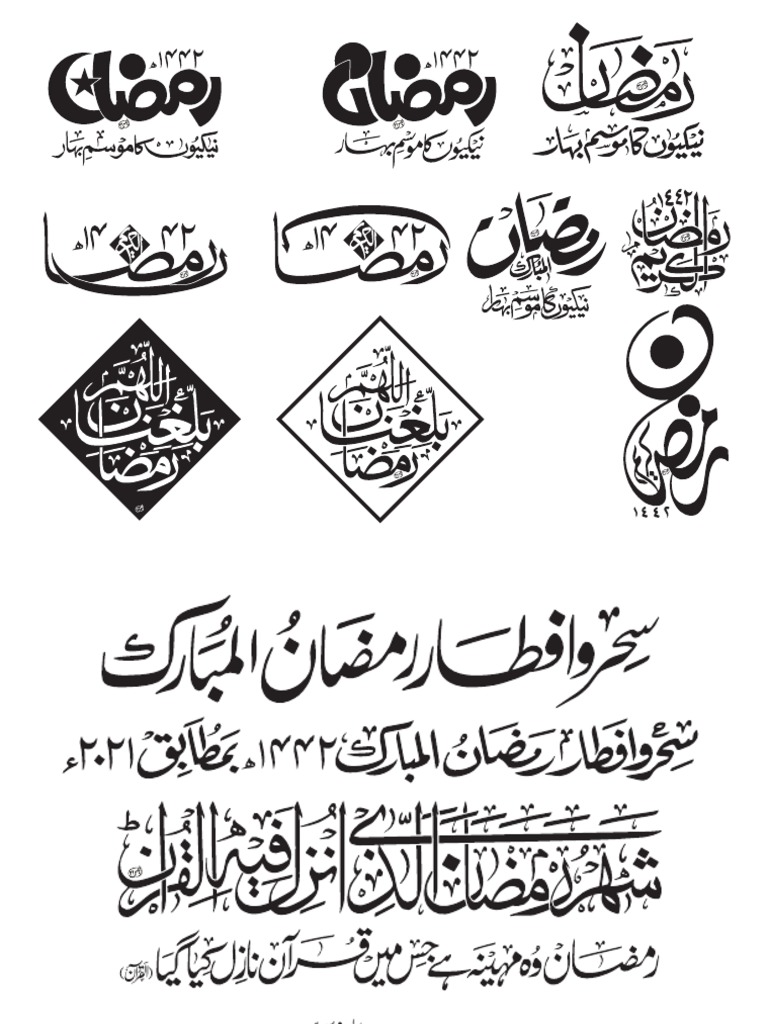 رمضان ۱۴۴۲ھ
نیکیوں کا موسم بہار
رمضان ۱۴۴۲ھ
نیکیوں کا موسم بہار
رمضان
نیکیوں کا موسم بہار
رمضان ۱۴۴۲ھ
رمضان ۱۴۴۲ھ
رمضان
المبارک
نیکیوں کا موسم بہار
۱۴۴۲
رمضان
الکریم
اللهم
بلغنا
رمضان
اللهم
بلغنا
رمضان
رمضان
۱۴۴۲
سحر و افطار رمضانُ المبُارک
سحر و افطار رمضانُ المبارک ۱۴۴۲ھ بمطابق ۲۰۲۱ء
شهر رمضان الذی انزل فیه القرآن ط
رمضان وہ مہینہ ہے جس میں قرآن نازل کیا گیا (القرآن)